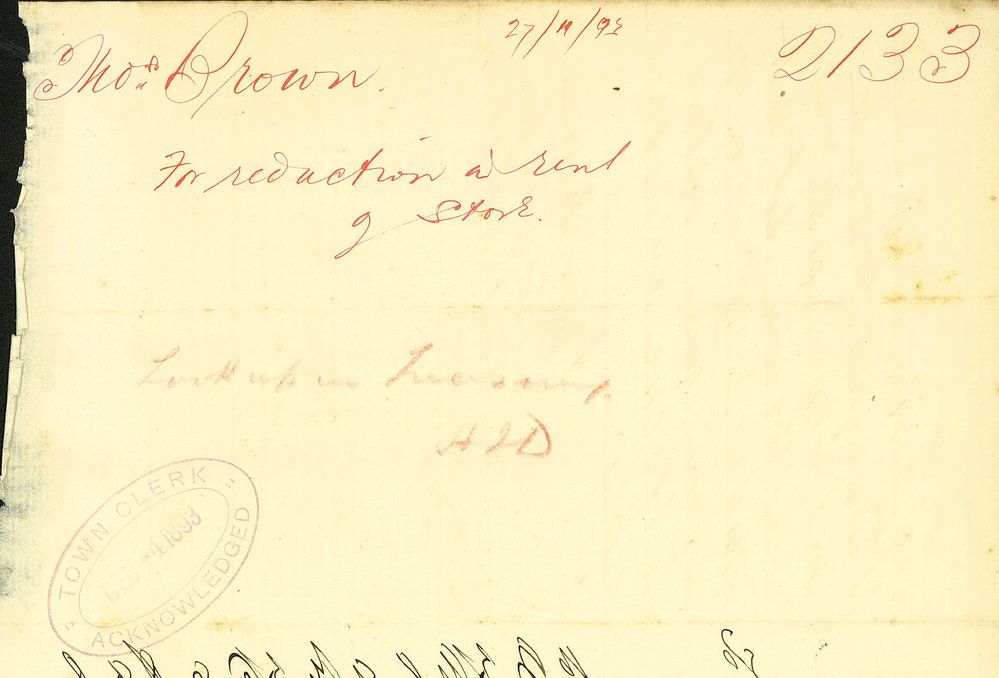 27/11/93
2133
Thos. Brown.
For reduction in rent
of Store.
Look up in Treasury.
TOWN CLERK
DEC -4 1893
ACKNOWLEDGED